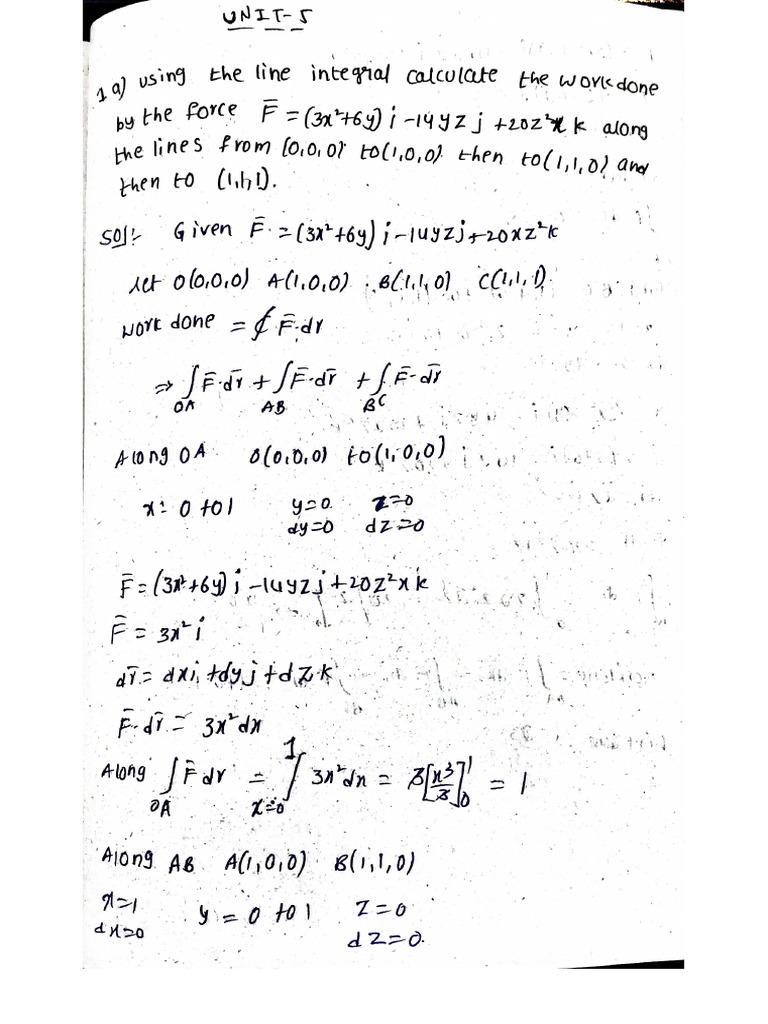 UNIT-5
1a) using the line integral calculate the work done
by the force F̄ = (3x²+6y) i -14yz j +20z²x k along
the lines from (0,0,0) to (1,0,0) then to (1,1,0) and
then to (1,1,1).
Sol:- Given F̄ = (3x²+6y) i -14yz j +20xz²k
let O(0,0,0) A(1,0,0) B(1,1,0) C(1,1,1)
work done = ∮ F̄.dr
⇒ ∫ F̄.dr̄ + ∫ F̄.dr̄ + ∫ F̄.dr̄
OA AB BC
Along OA O(0,0,0) to (1,0,0)
x: 0 to 1 y=0 z=0
dy=0 dz=0
F̄ = (3x²+6y) i -14yz j +20z²x k
F̄ = 3x² i
dr̄ = dx i + dy j + dz k
F̄.dr̄ = 3x²dx
Along ∫ F̄dr = ∫ 3x²dx = 3[x³/3]₀¹ = 1
OA x=0 1
Along AB A(1,0,0) B(1,1,0)
x=1 y = 0 to 1 z=0
dx=0 dz=0.